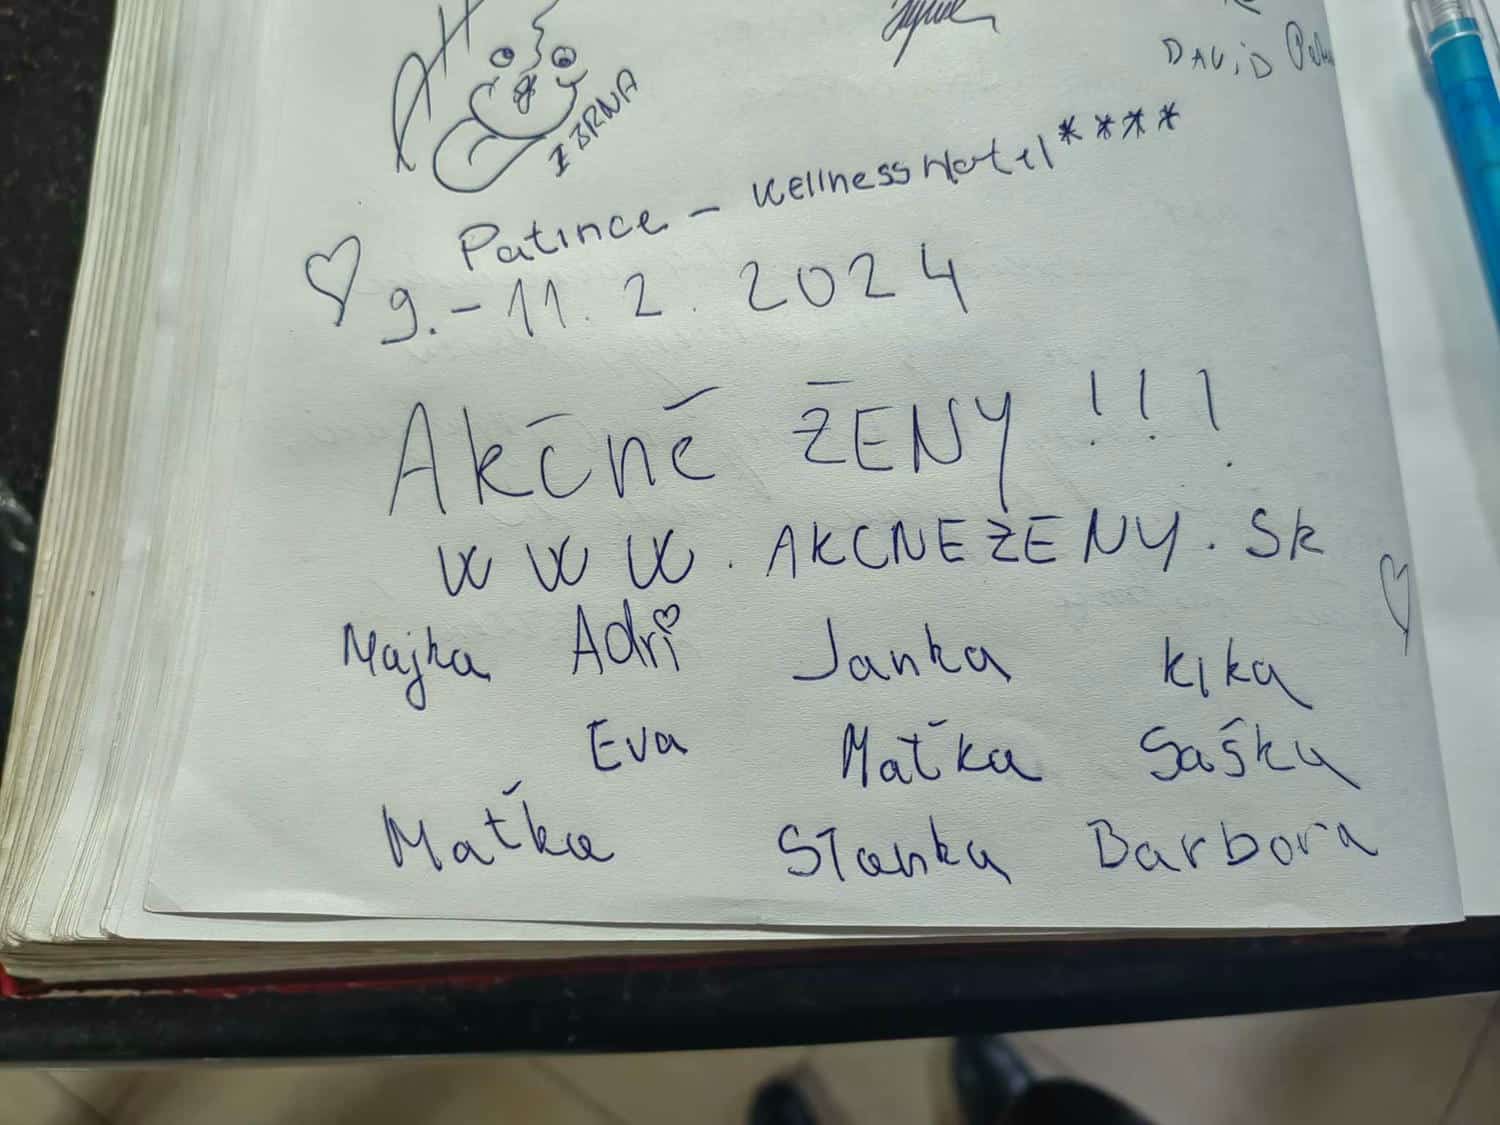 I BRNA
DAVID
Patince - Wellness Hotel****
9.-11. 2. 2024
Akčné ŽENY!!!
WWW.AKCNEZENY.Sk
Majka Adri Janka kika
Eva Maťka Saška
Maťka Stanka Barbora